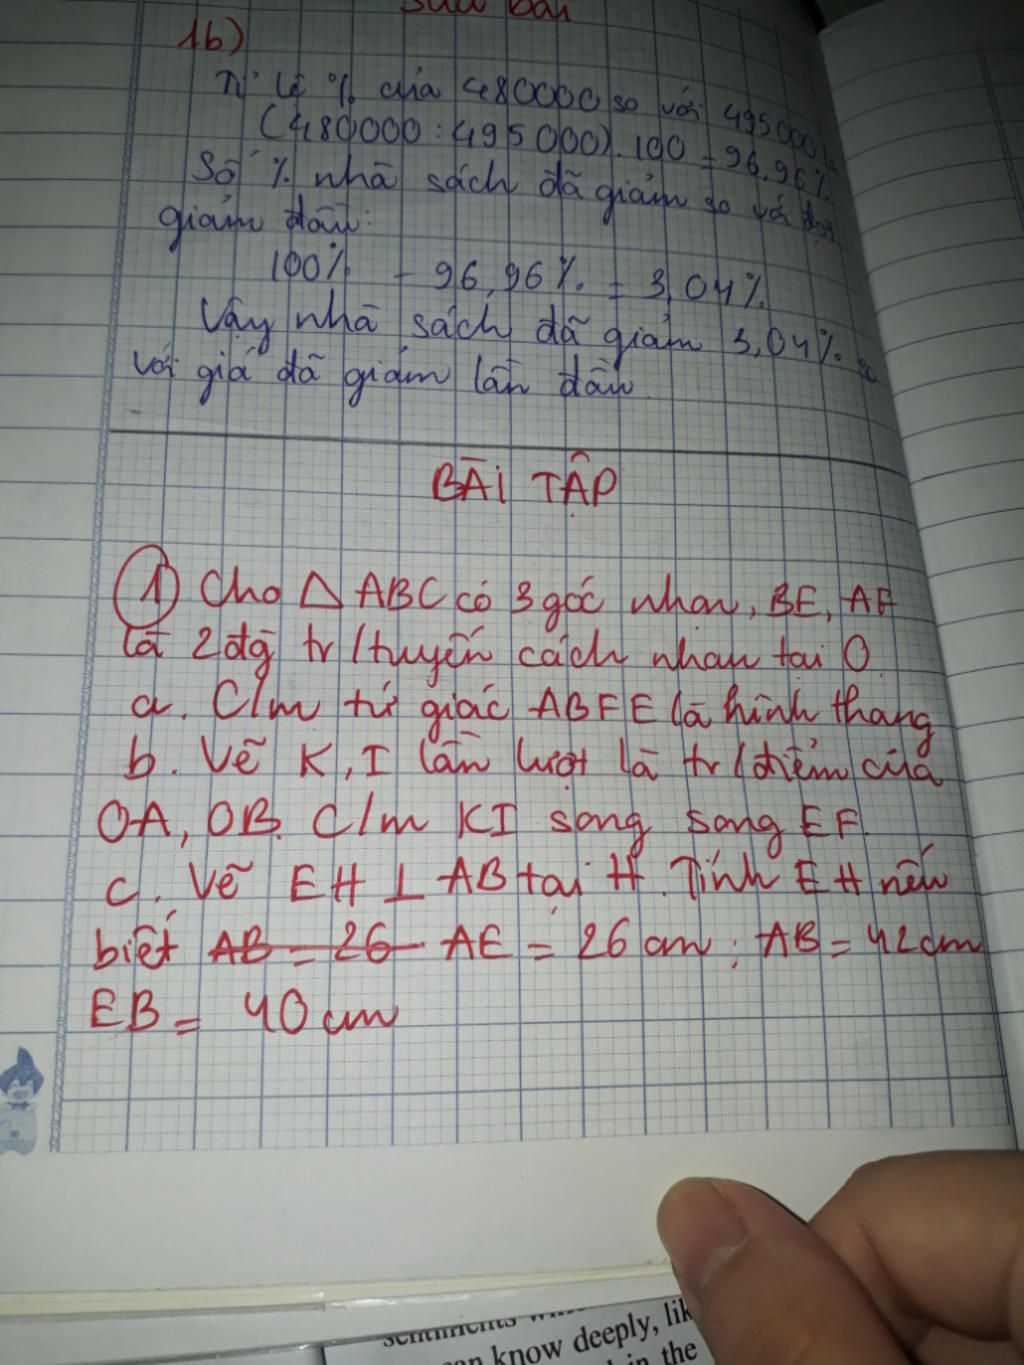 Sửa bài
1b)
Tỉ lệ % của 480000 so với 495000
(480000 : 495000).100 = 96,96%
Số % nhà sách đã giảm so với đợt
giảm đầu:
100% - 96,96% = 3,04%
Vậy nhà sách đã giảm 3,04% so
với giá đã giảm lần đầu.
BÀI TẬP
① Cho △ ABC có 3 góc nhọn, BE, AF
là 2 đg tr/tuyến cách nhau tại O
a. C/m tứ giác ABFE là hình thang
b. Vẽ K, I lần lượt là tr/điểm của
OA, OB. C/m KI song song EF.
c. Vẽ EH ⊥ AB tại H. Tính EH nếu
biết AB = 26 AE = 26 cm ; AB = 42 cm
EB = 40 cm
know deeply, lik
in the